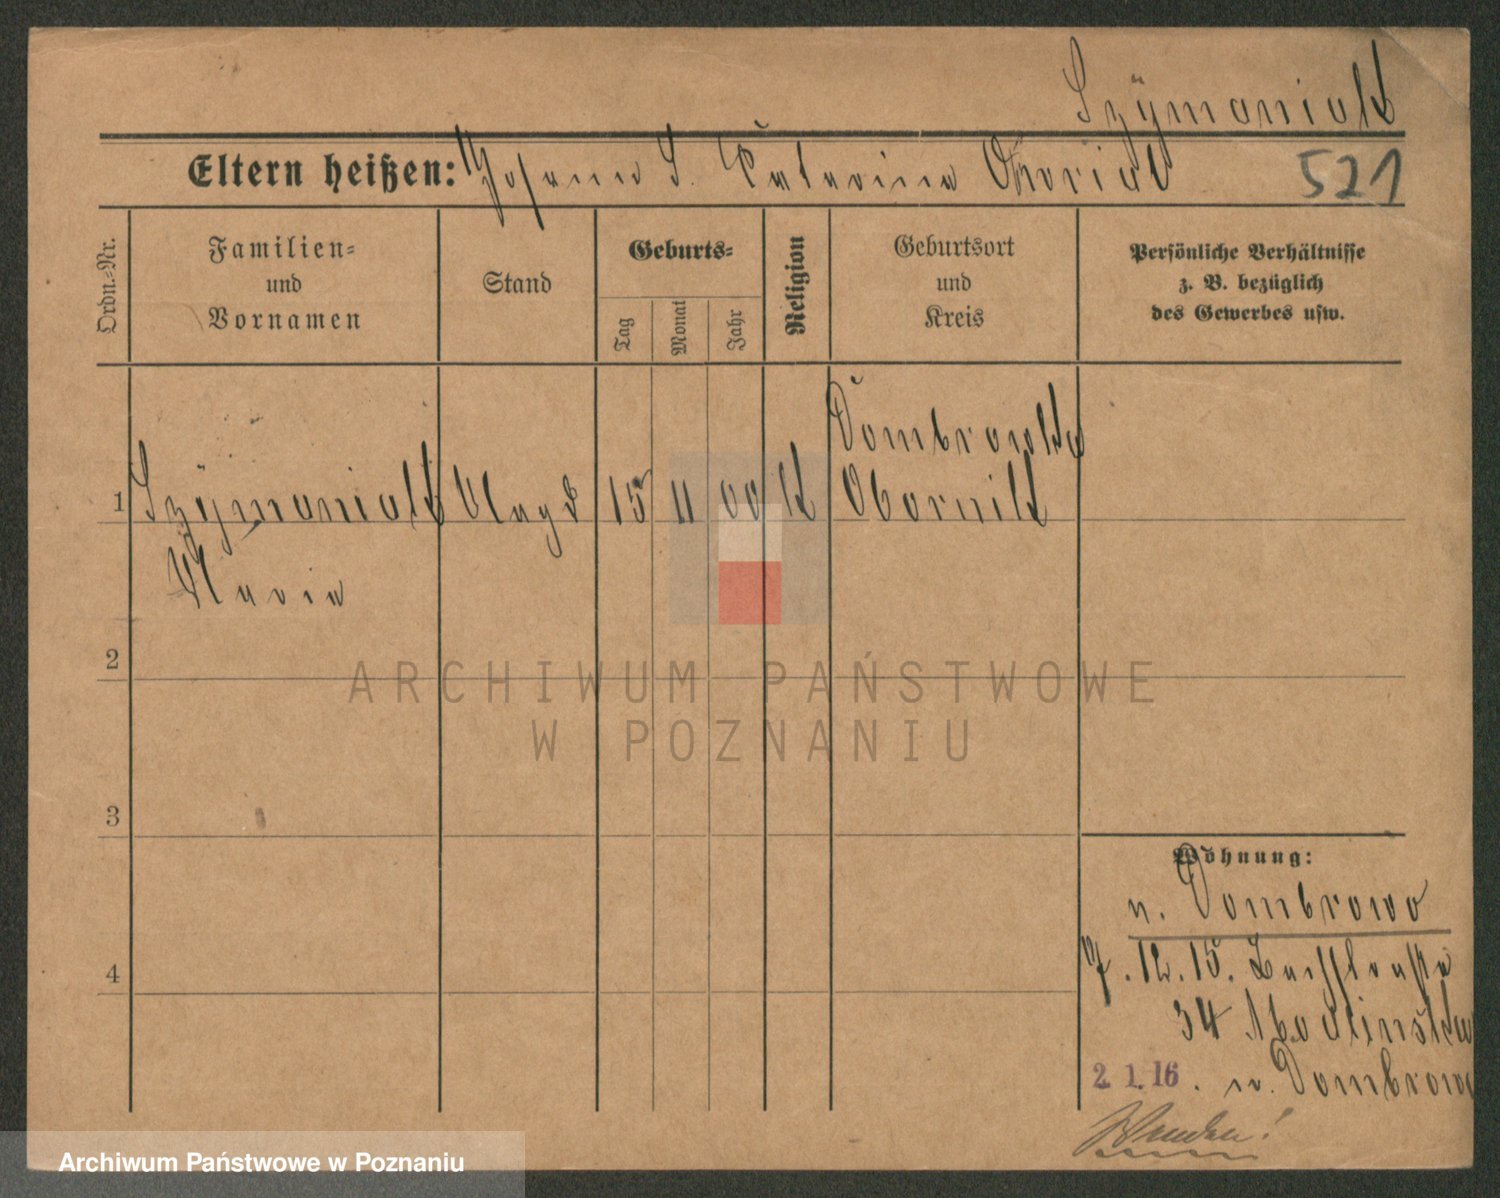 Szÿmaniak
Eltern heißen: Johann S. Katarina Oboriak
521
Ordn.-Nr.
Familien-
und
Vornamen
Stand
Geburts-
Tag
Monat
Jahr
Religion
Geburtsort
und
Kreis
Persönliche Verhältnisse
z. B. bezüglich
des Gewerbes usw.
1 Szÿmaniak Magd 15 11 00 k Dombrowka
Obornik
Maria
2
3
4
Wohnung:
n. Dombrowo
7.12.15.
34
2. 1. 16. n. Dombrowo
Wenden!
ARCHIWUM PAŃSTWOWE
W POZNANIU
Archiwum Państwowe w Poznaniu